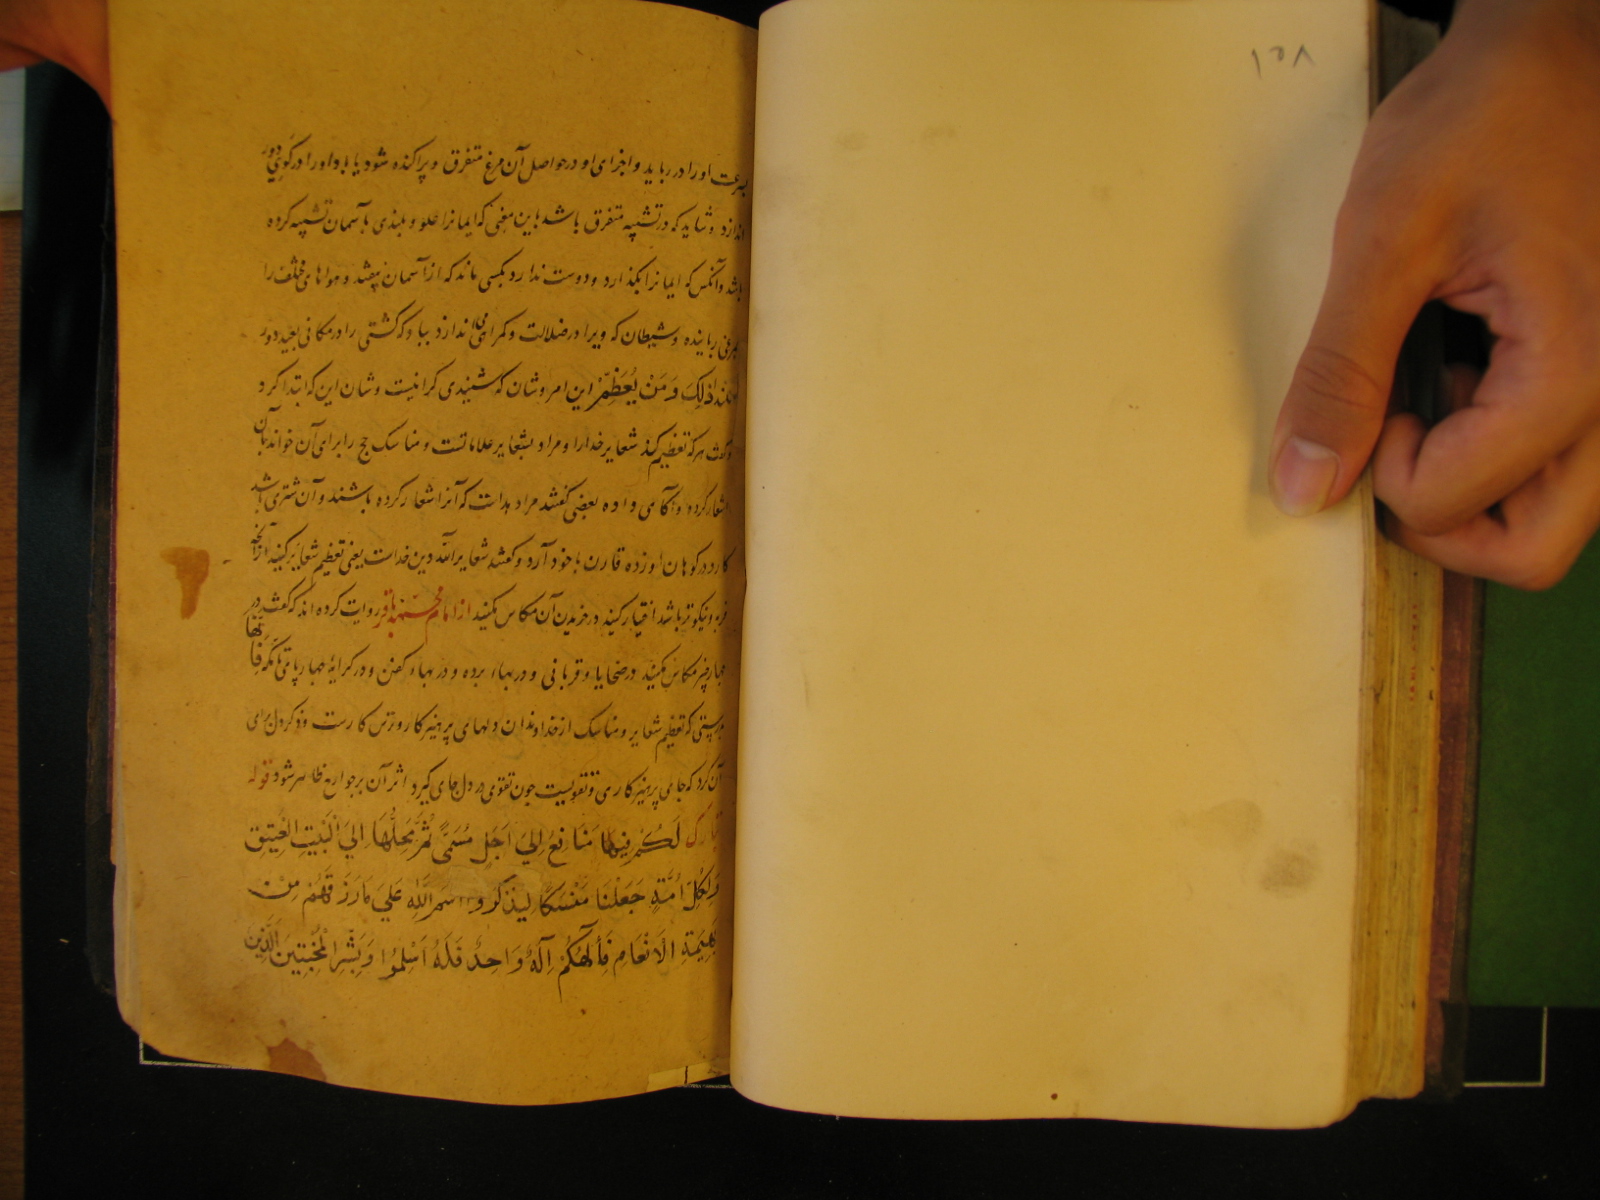 ۱۵۸
بسرعت اورا در رباید و اجزای او در حواصل آن مرغ متفرق و پراکنده شود یا باد اورا در کوی دور
اندازد و شاید که در تشبیه متفرق باشد باین معنی که ایمانرا علو و بلندی بآسمان تشبیه کرده
باشد و آنکس که ایمانرا بگذارد و دوست ندارد بکسی ماند که از آسمان بیفتد و هواهای مختلف را
بمرغی رباینده و شیطان که ویرا در ضلالت و کمراهی اندازد بباد که کشتی را در مکانی بعید دور
ذلِكَ وَمَنْ يُعَظِّمْ این امر و شان که شنیدی کرانیست و شان این که ابتدا کرد
و کفت هر که تعظیم کند شعایر خدارا و مراد بشعایر علاماتست و مناسک حج را برای آن خواند بآن
اشعار کرده و آگاهی داده بعضی کفتند مراد بدانست که آنرا اشعار کرده باشند و آن شتری باشد
کارد در کوهان او زده قارن با خود آرد و کفتند شعایر الله دین خداست یعنی تعظیم شعایر کنید از آنچه
فربه و نیکوتر باشد اختیار کنید در خریدن آن مکاس مکنید از امام محمد باقر روایت کرده اند که کفتند در
چهار چیز مکاس مکنید در ضحایا و قربانی و در بهاء برده و در بهاء کفن و در کرایهٔ چهارپای تا بمکه فَاِنَّها
بدرستی که تعظیم شعایر و مناسک از خداوندان دلهای پرهیزکار و ترس کارست و ذکر دل برای
آن کرد که جای پرهیزکاری و تقویست چون تقوی در دل جای کیرد اثر آن بر جوارح ظاهر شود قوله
تبارک لَكُمْ فِيهَا مَنَافِعُ اِلَى اَجَلٍ مُسَمًّى ثُمَّ مَحِلُّهَا اِلَى الْبَيْتِ الْعَتِيقِ
وَلِكُلِّ اُمَّةٍ جَعَلْنَا مَنْسَكًا لِيَذْكُرُوا اسْمَ اللّٰهِ عَلَى مَا رَزَقَهُمْ مِنْ
بَهِيمَةِ الْاَنْعَامِ فَاِلٰهُكُمْ اِلٰهٌ وَاحِدٌ فَلَهُ اَسْلِمُوا وَبَشِّرِ الْمُخْبِتِينَ الَّذِينَ